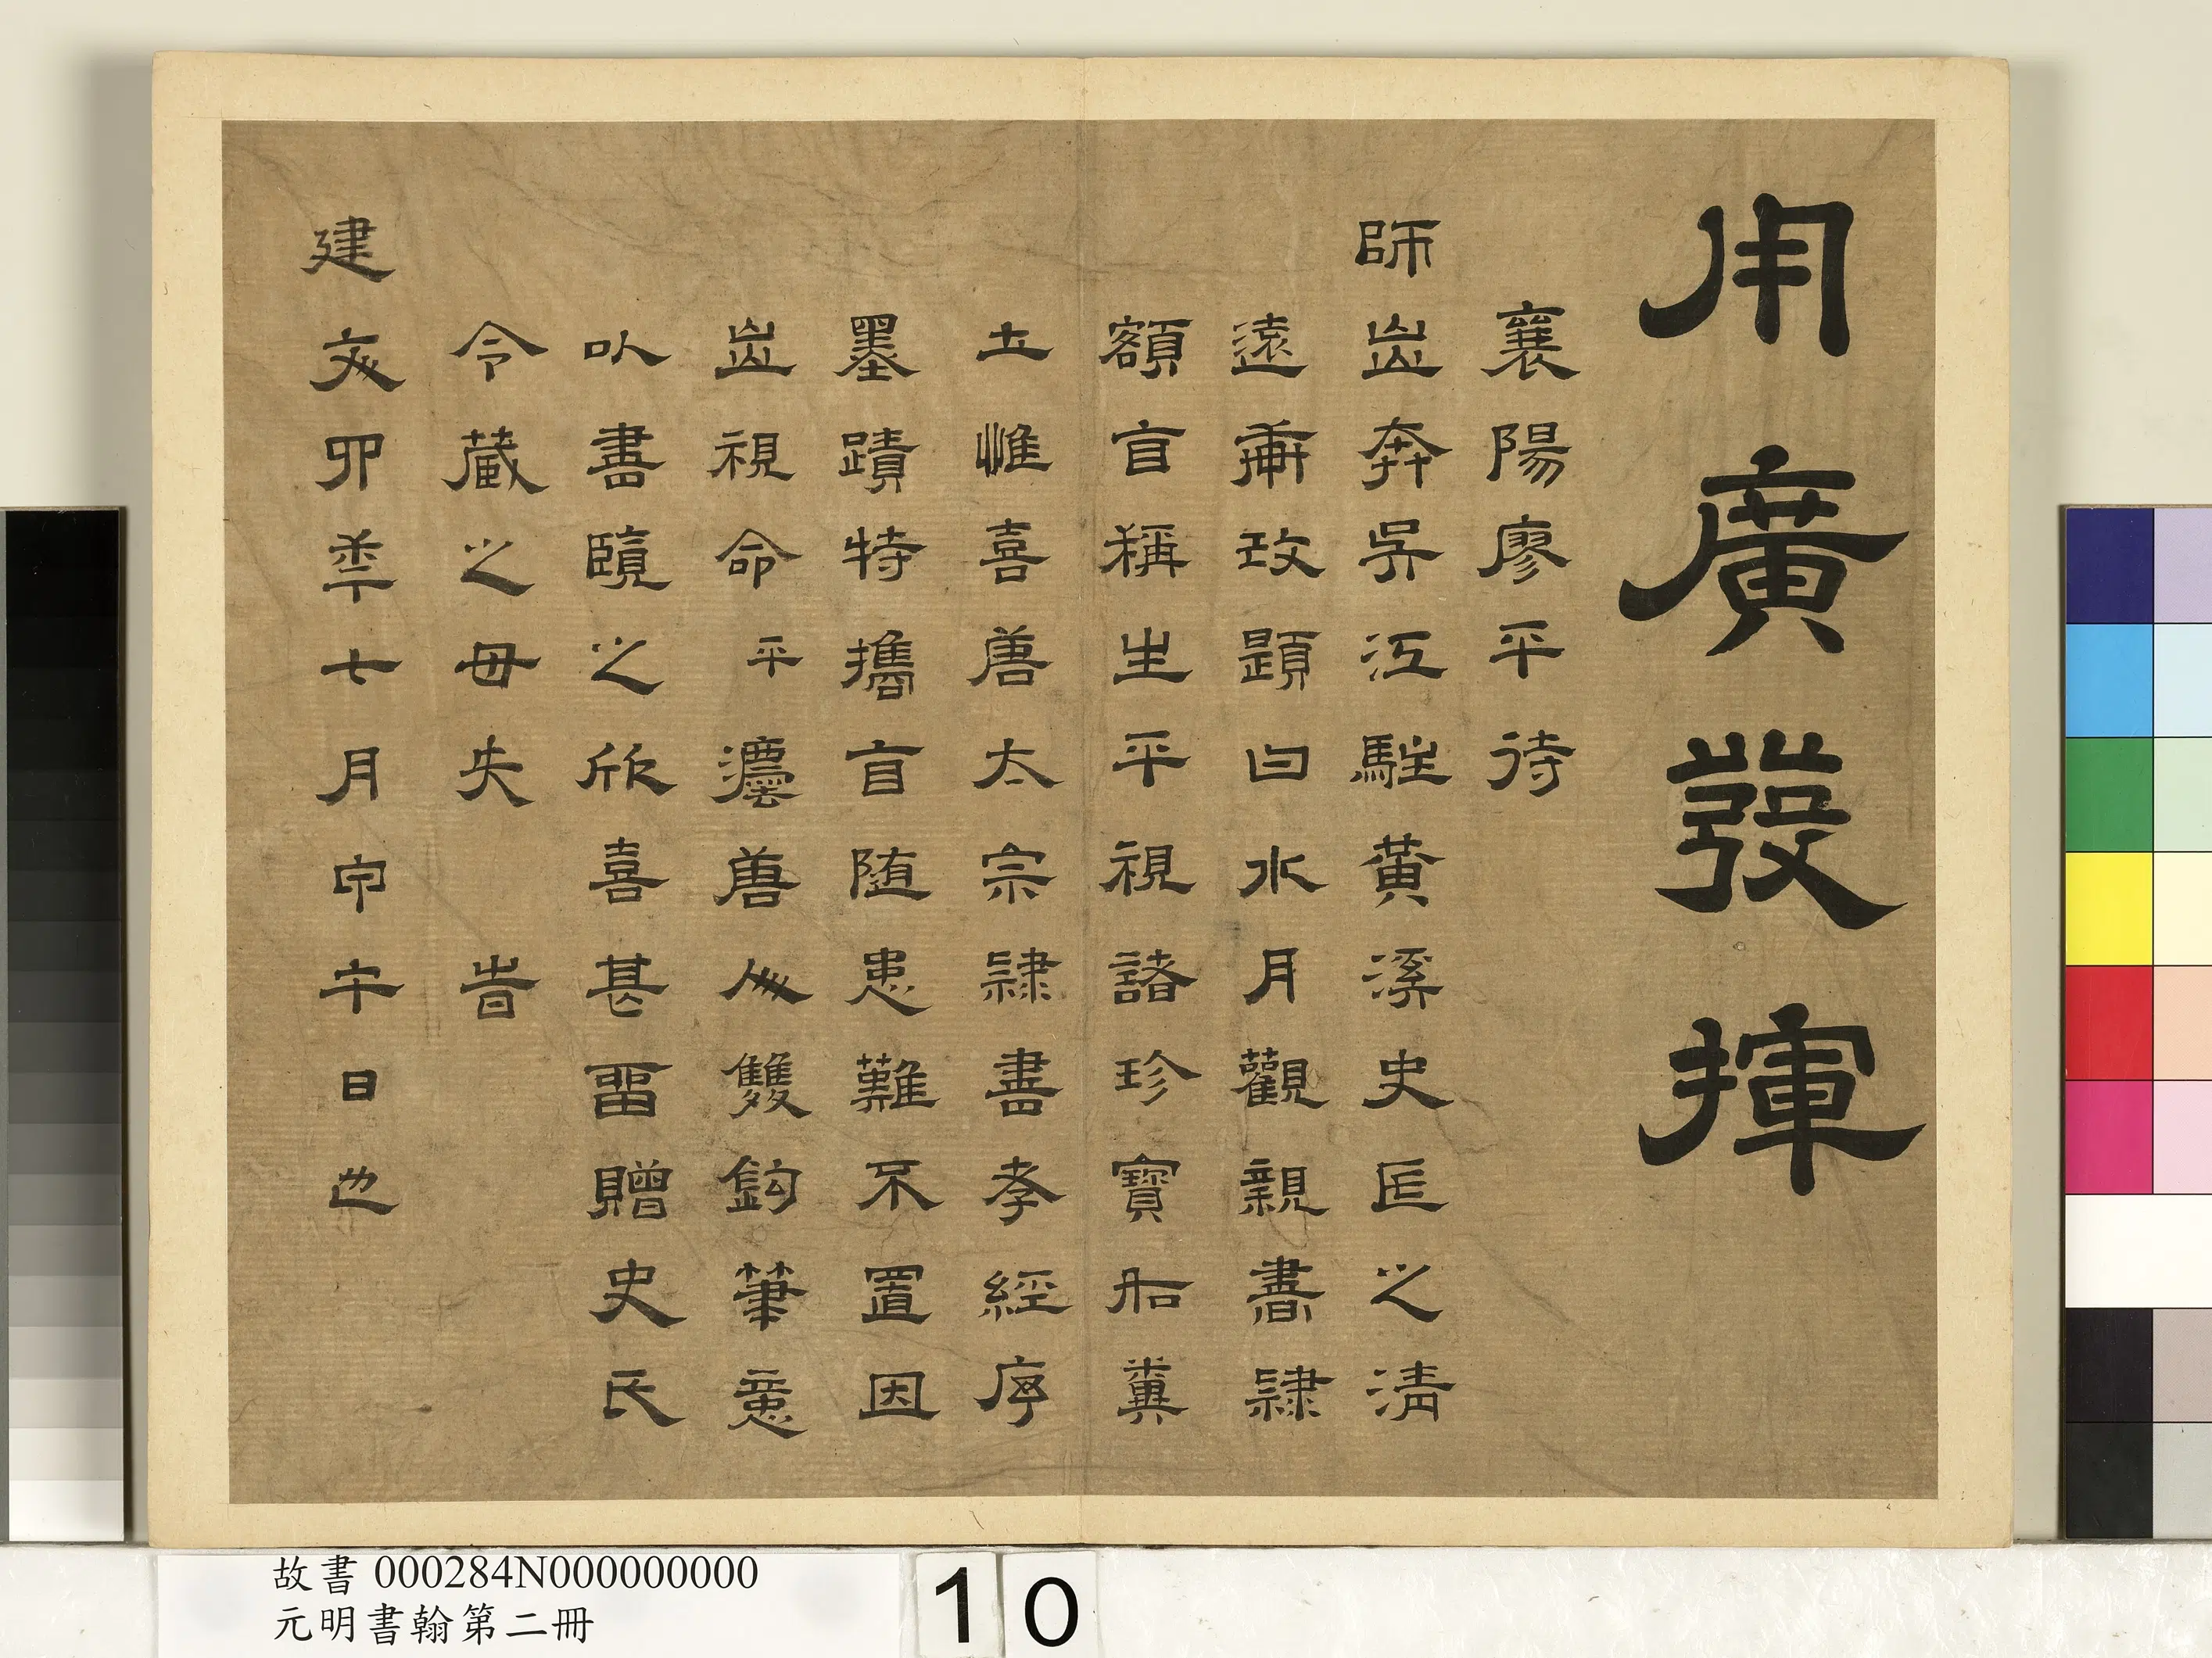 用廣發揮
襄陽廖平待
師出奔吳江駐黃溪史臣之清
遠軒改題曰水月觀親書隸
額自稱生平視諸珍寶如糞
土惟喜唐太宗隸書孝經序
墨蹟特攜自隨患難不置因
出視命平灋唐人雙鈎筆意
以書覽之欣喜甚留贈史氏
令藏之毋失 時
建文四年七月甲午日也
故書 000284N000000000
元明書翰第二冊
10